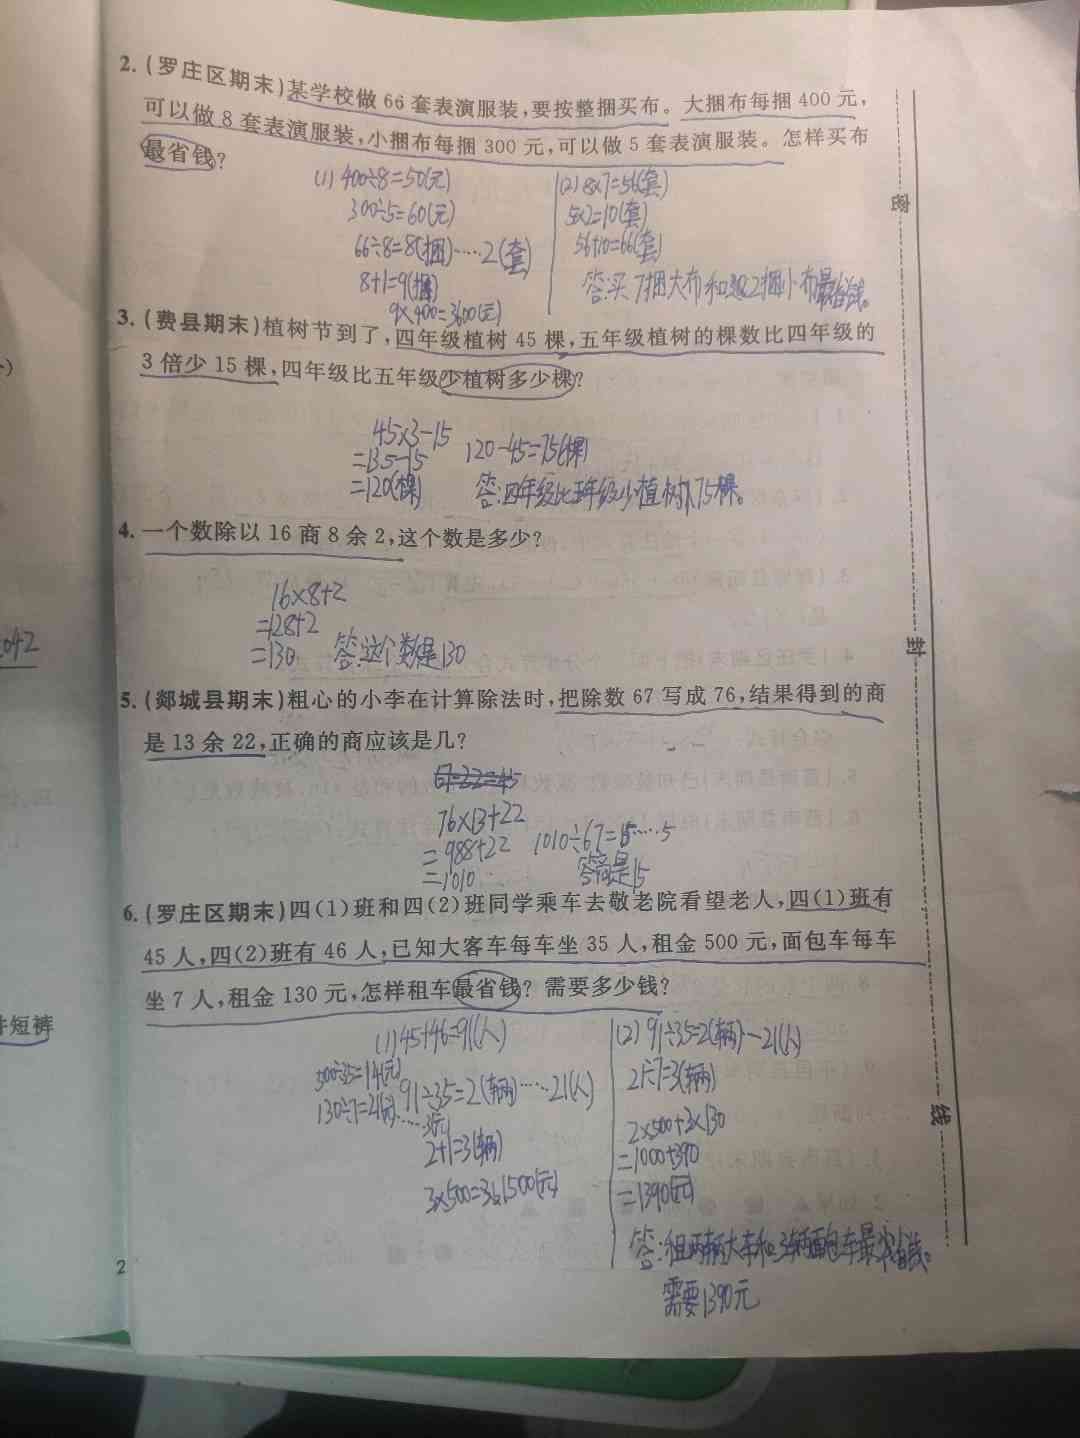 2.(罗庄区期末)某学校做 66 套表演服装,要按整捆买布。大捆布每捆 400 元,
可以做 8 套表演服装,小捆布每捆 300 元,可以做 5 套表演服装。怎样买布
最省钱?
(1)400÷8=50(元)
300÷5=60(元)
66÷8=8(捆)……2(套)
8+1=9(捆)
9×400=3600(元)
(2)8×7=56(套)
5×2=10(套)
56+10=66(套)
答:买7捆大布和2捆小布最省钱。
3.(费县期末)植树节到了,四年级植树 45 棵,五年级植树的棵数比四年级的
3 倍少 15 棵,四年级比五年级少植树多少棵?
45×3-15
=135-15
=120(棵)
120-45=75(棵)
答:四年级比五年级少植树75棵。
4.一个数除以 16 商 8 余 2,这个数是多少?
16×8+2
=128+2
=130
答:这个数是130
5.(郯城县期末)粗心的小李在计算除法时,把除数 67 写成 76,结果得到的商
是 13 余 22,正确的商应该是几?
67-22=45
76×13+22
=988+22
=1010
1010÷67=15……5
答商是15
6.(罗庄区期末)四(1)班和四(2)班同学乘车去敬老院看望老人,四(1)班有
45 人,四(2)班有 46 人,已知大客车每车坐 35 人,租金 500 元,面包车每车
坐 7 人,租金 130 元,怎样租车最省钱?需要多少钱?
(1)45+46=91(人)
500÷35=14(元)
130÷7=21(元)
91÷35=2(辆)……21(人)
2+1=3(辆)
3×500=1500(元)
(2)91÷35=2(辆)…21(人)
21÷7=3(辆)
2×500+3×130
=1000+390
=1390(元)
答:租两辆大车和3辆面包车最省钱。
需要1390元
2
密
封
线
042
短裤